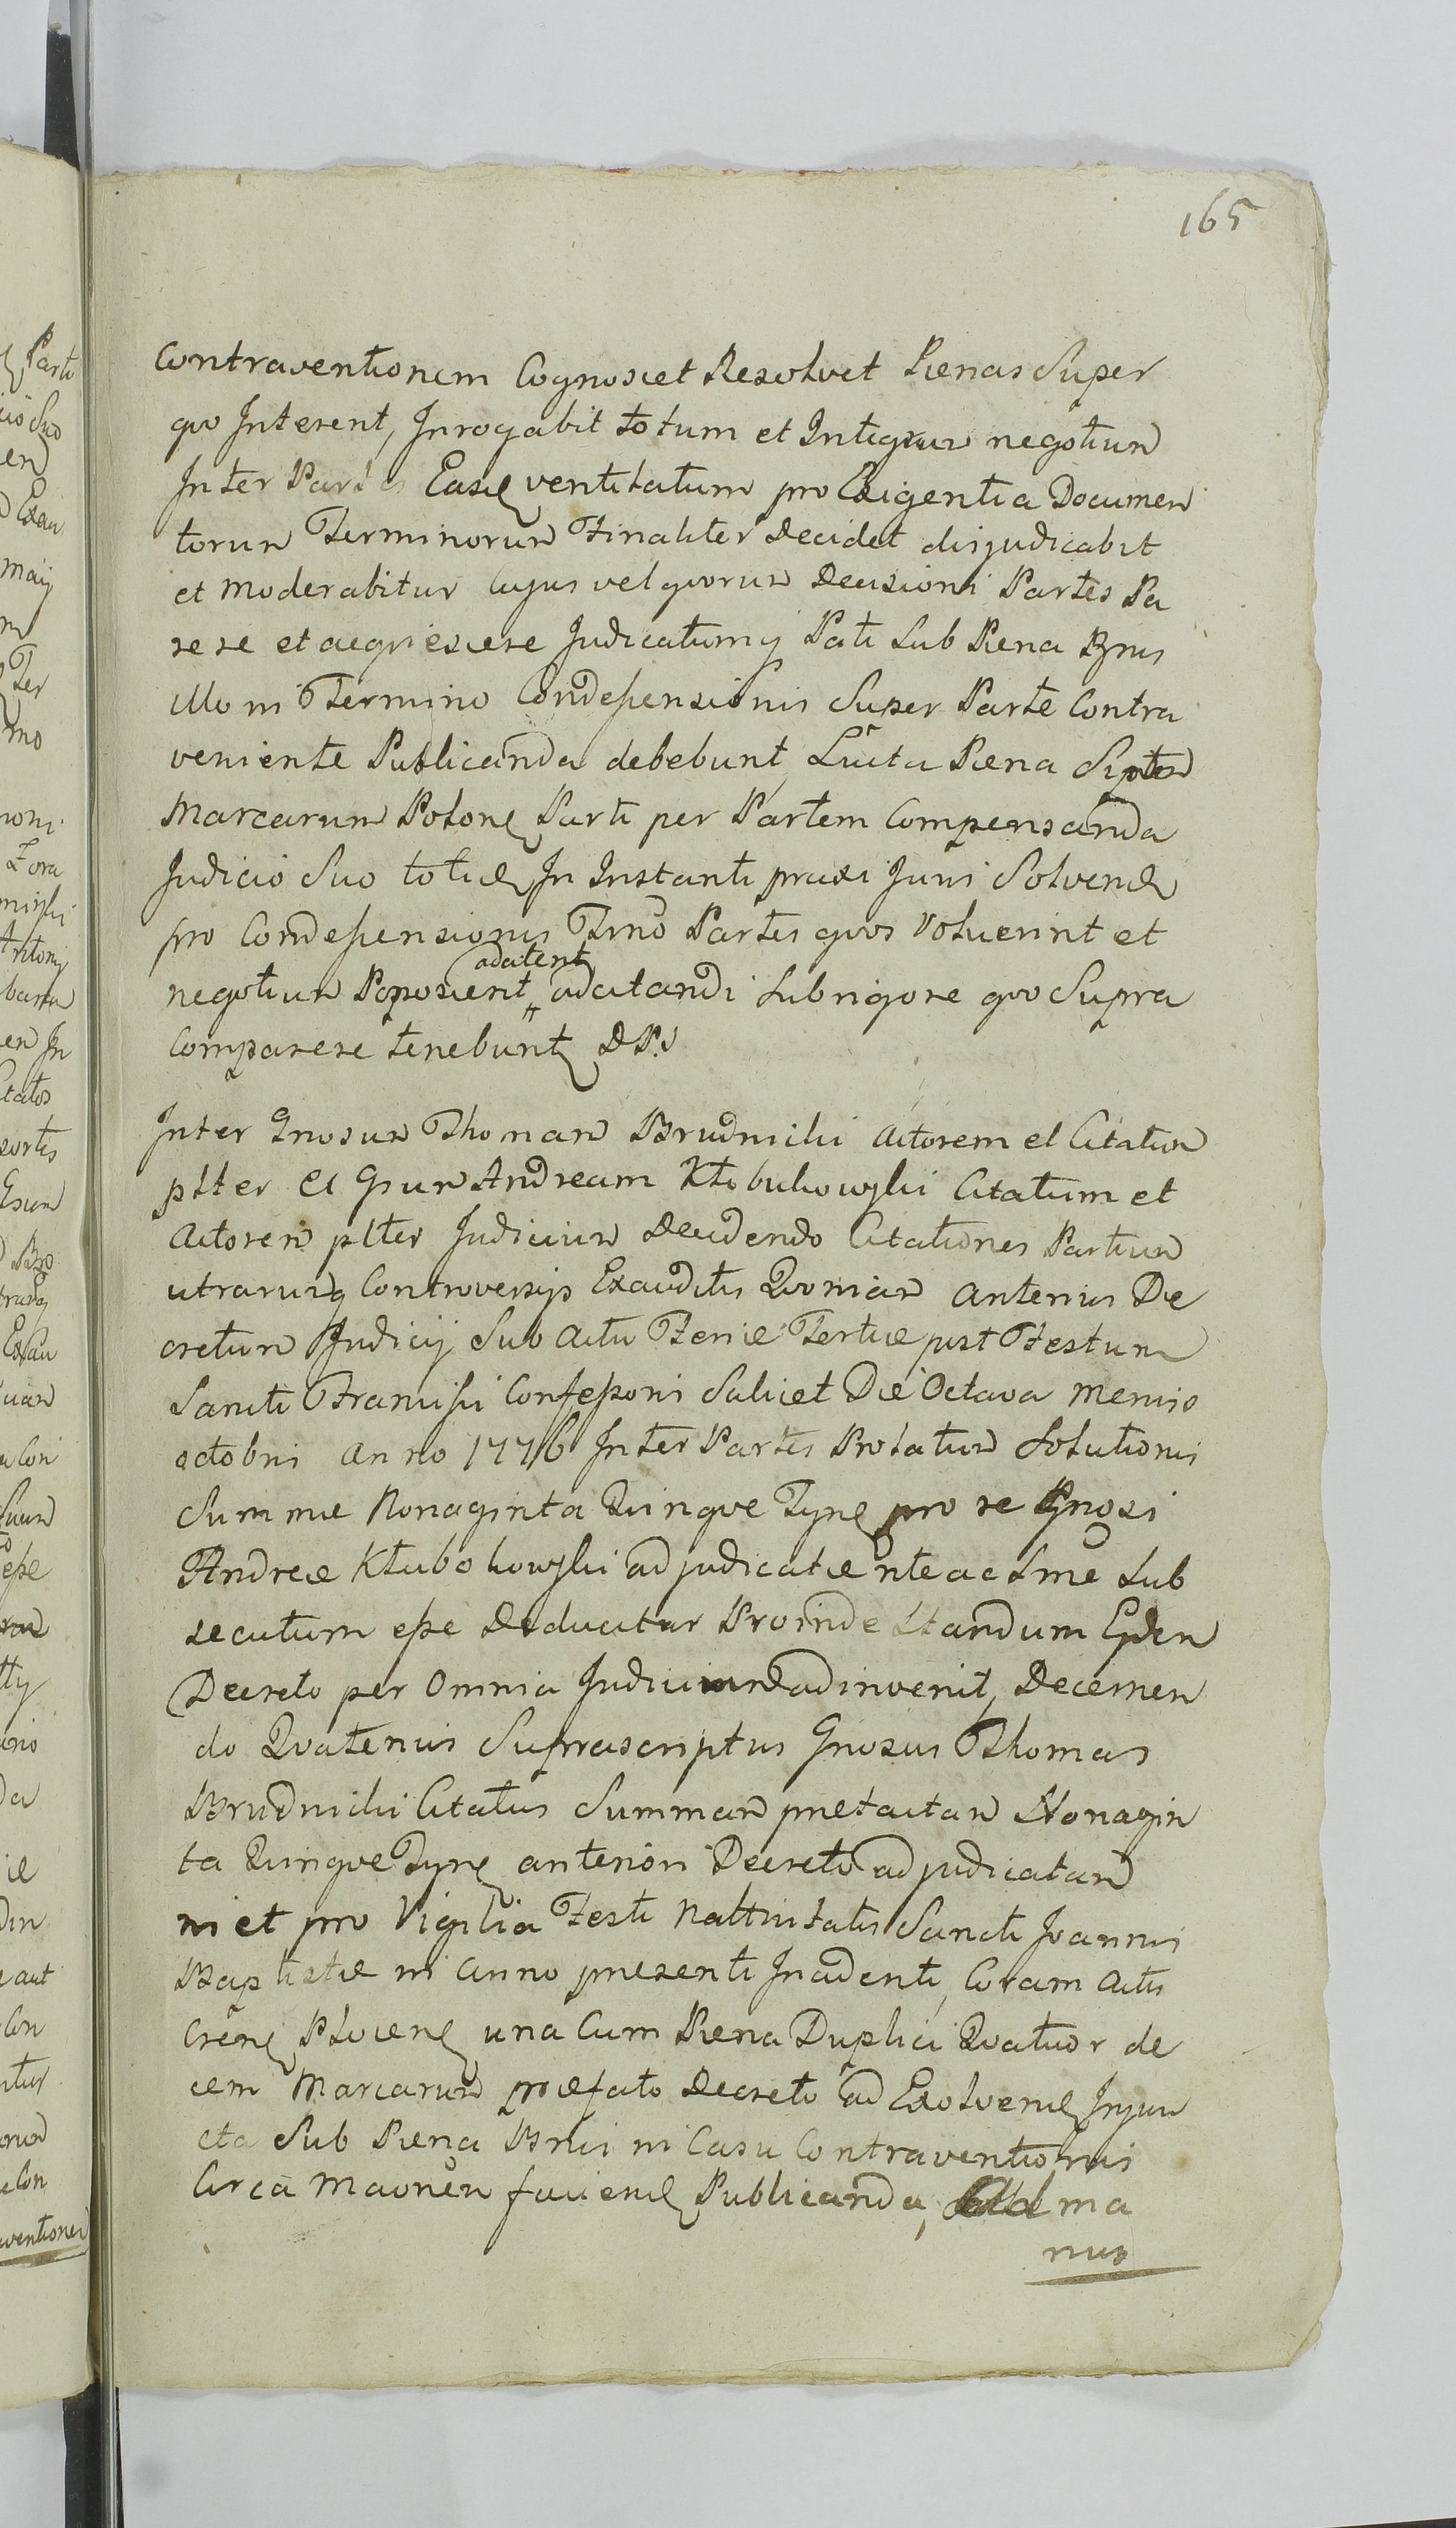 165
Contraventionem Cognoscet Resolvet Pænas Super
quo Interent, Inrogabit totum et Integrum negotium
Inter Partes Easd ventilatum pro Exigentia Documen
torum Terminorum Finaliter Decidet disjudicabit
et Moderabitur Cujus vel quorum Decisioni Partes Pa
rere et acquiescere Judicatumq Pati Sub Pæna Bnis
illo in Termino Condescensionis Super Parte Contra
veniente Publicanda debebunt, Luita Pæna Septem
Marcarum Polon Parti per Partem Compensanda
Judicio Suo totid In Instanti praxi Juris Solvend
pro Condescensionis Tmo Partes quos Voluerint et
adcitent
negotium Poposcerit adcitandi Sub rigore quo Supra
Comparere tenebunt DPS
Inter Gnosum Thomam Brudnicki Actorem et Citatum
plter et Gsum Andream Kłobukowski Citatum et
Actorem plter Judicium Decidendo Citationes Partium
utrarumq Controversijs Exauditis Quoniam anterius De
cretum Judicij Sub Actu Feriæ Tertiæ post Festum
Sancti Francisci Confessoris Scilicet Die Octava Mensis
octobris Anno 1776 Inter Partes Prolatum Solutionis
Summæ Nonaginta Quinque Tyn pro re Gnosi
Andreæ Kłubokowski adjudicatæ nte ac Sme Sub
secutum esse Deducitur Proinde Standum Eidem
Decreto per Omnia Judicium adinvenit, Decernen
do Quatenus Suprascriptus Gnosus Thomas
Brudnicki Citatus Summam prætactam Nonagin
ta Quinque Tyn anteriori Decreto adjudicatam
in et pro Vigilia Festi Nattivitatis Sancti Joannis
Baptistæ in anno præsenti Incidenti, Coram Actis
Cren Plocen una Cum Pæna Duplici Quatuor de
cem Marcarum præfato Decreto ad Exolvend Injun
cta Sub Pæna Bnis in Casu Contraventionis
Circa Maonen faciend Publicanda, ad ma
nus